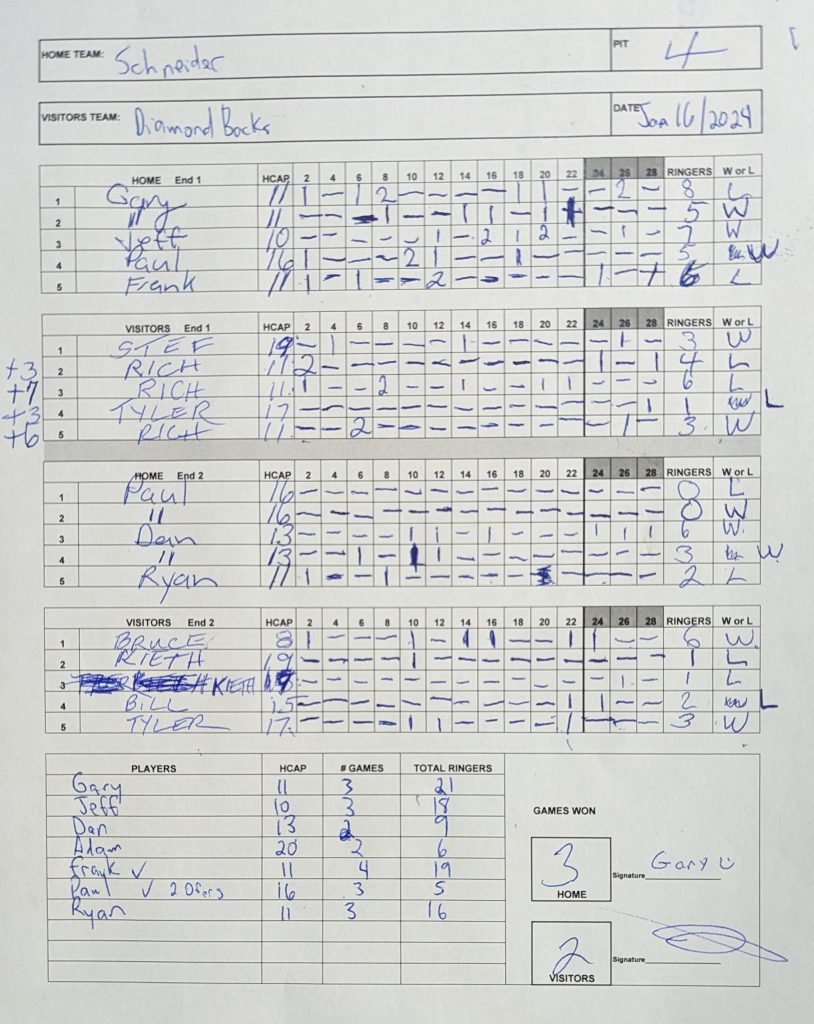 HOME TEAM: Schneider PIT 4
VISITORS TEAM: Diamond Backs DATE Jan 16/2024
HOME End 1 HCAP 2 4 6 8 10 12 14 16 18 20 22 24 26 28 RINGERS W or L
1 Gary 11 1 – 1 2 – – – – 1 1 – – 2 – 8 L
2 " 11 – – – 1 – – 1 1 – 1 1 – – – 5 W
3 Jeff 10 – – – – – 1 – 2 1 2 – – 1 – 7 W
4 Paul 16 1 – – – 2 1 – – 1 – – – – – 5 W
5 Frank 11 1 – 1 – – 2 – – – – – 1 – 1 6 L
VISITORS End 1 HCAP 2 4 6 8 10 12 14 16 18 20 22 24 26 28 RINGERS W or L
1 STEF 19 – 1 – – – – 1 – – – – – 1 – 3 W
+3 2 RICH 11 2 – – – – – – – – – – 1 – 1 4 L
+7 3 RICH 11 1 – – 2 – – 1 – – 1 1 – – – 6 L
+3 4 TYLER 17 – – – – – – – – – – – – – 1 1 L
+6 5 RICH 11 – – 2 – – – – – – – – – 1 – 3 W
HOME End 2 HCAP 2 4 6 8 10 12 14 16 18 20 22 24 26 28 RINGERS W or L
1 Paul 16 – – – – – – – – – – – – – – 0 L
2 " 16 – – – – – – – – – – – – – – 0 W
3 Dan 13 – – – – 1 1 – 1 – – – 1 1 1 6 W
4 " 13 – – 1 – 1 1 – – – – – – – – 3 W
5 Ryan 11 1 – – 1 – – – – – – – – – – 2 L
VISITORS End 2 HCAP 2 4 6 8 10 12 14 16 18 20 22 24 26 28 RINGERS W or L
1 BRUCE 8 1 – – – 1 – 1 1 – – 1 1 – – 6 W
2 RIETH 19 – – – – 1 – – – – – – – – – 1 L
3 KIETH – – – – – – – – – – – – 1 – 1 L
4 BILL 15 – – – – – – – – – – 1 1 – – 2 L
5 TYLER 17 – – – – 1 1 – – – – 1 – – – 3 W
PLAYERS HCAP # GAMES TOTAL RINGERS
Gary 11 3 21
Jeff 10 3 18
Dan 13 2 9
Adam 20 2 6
Frank ✓ 11 4 19
Paul ✓ 2 0fers 16 3 5
Ryan 11 3 16
GAMES WON
3 HOME Signature Gary
2 VISITORS Signature